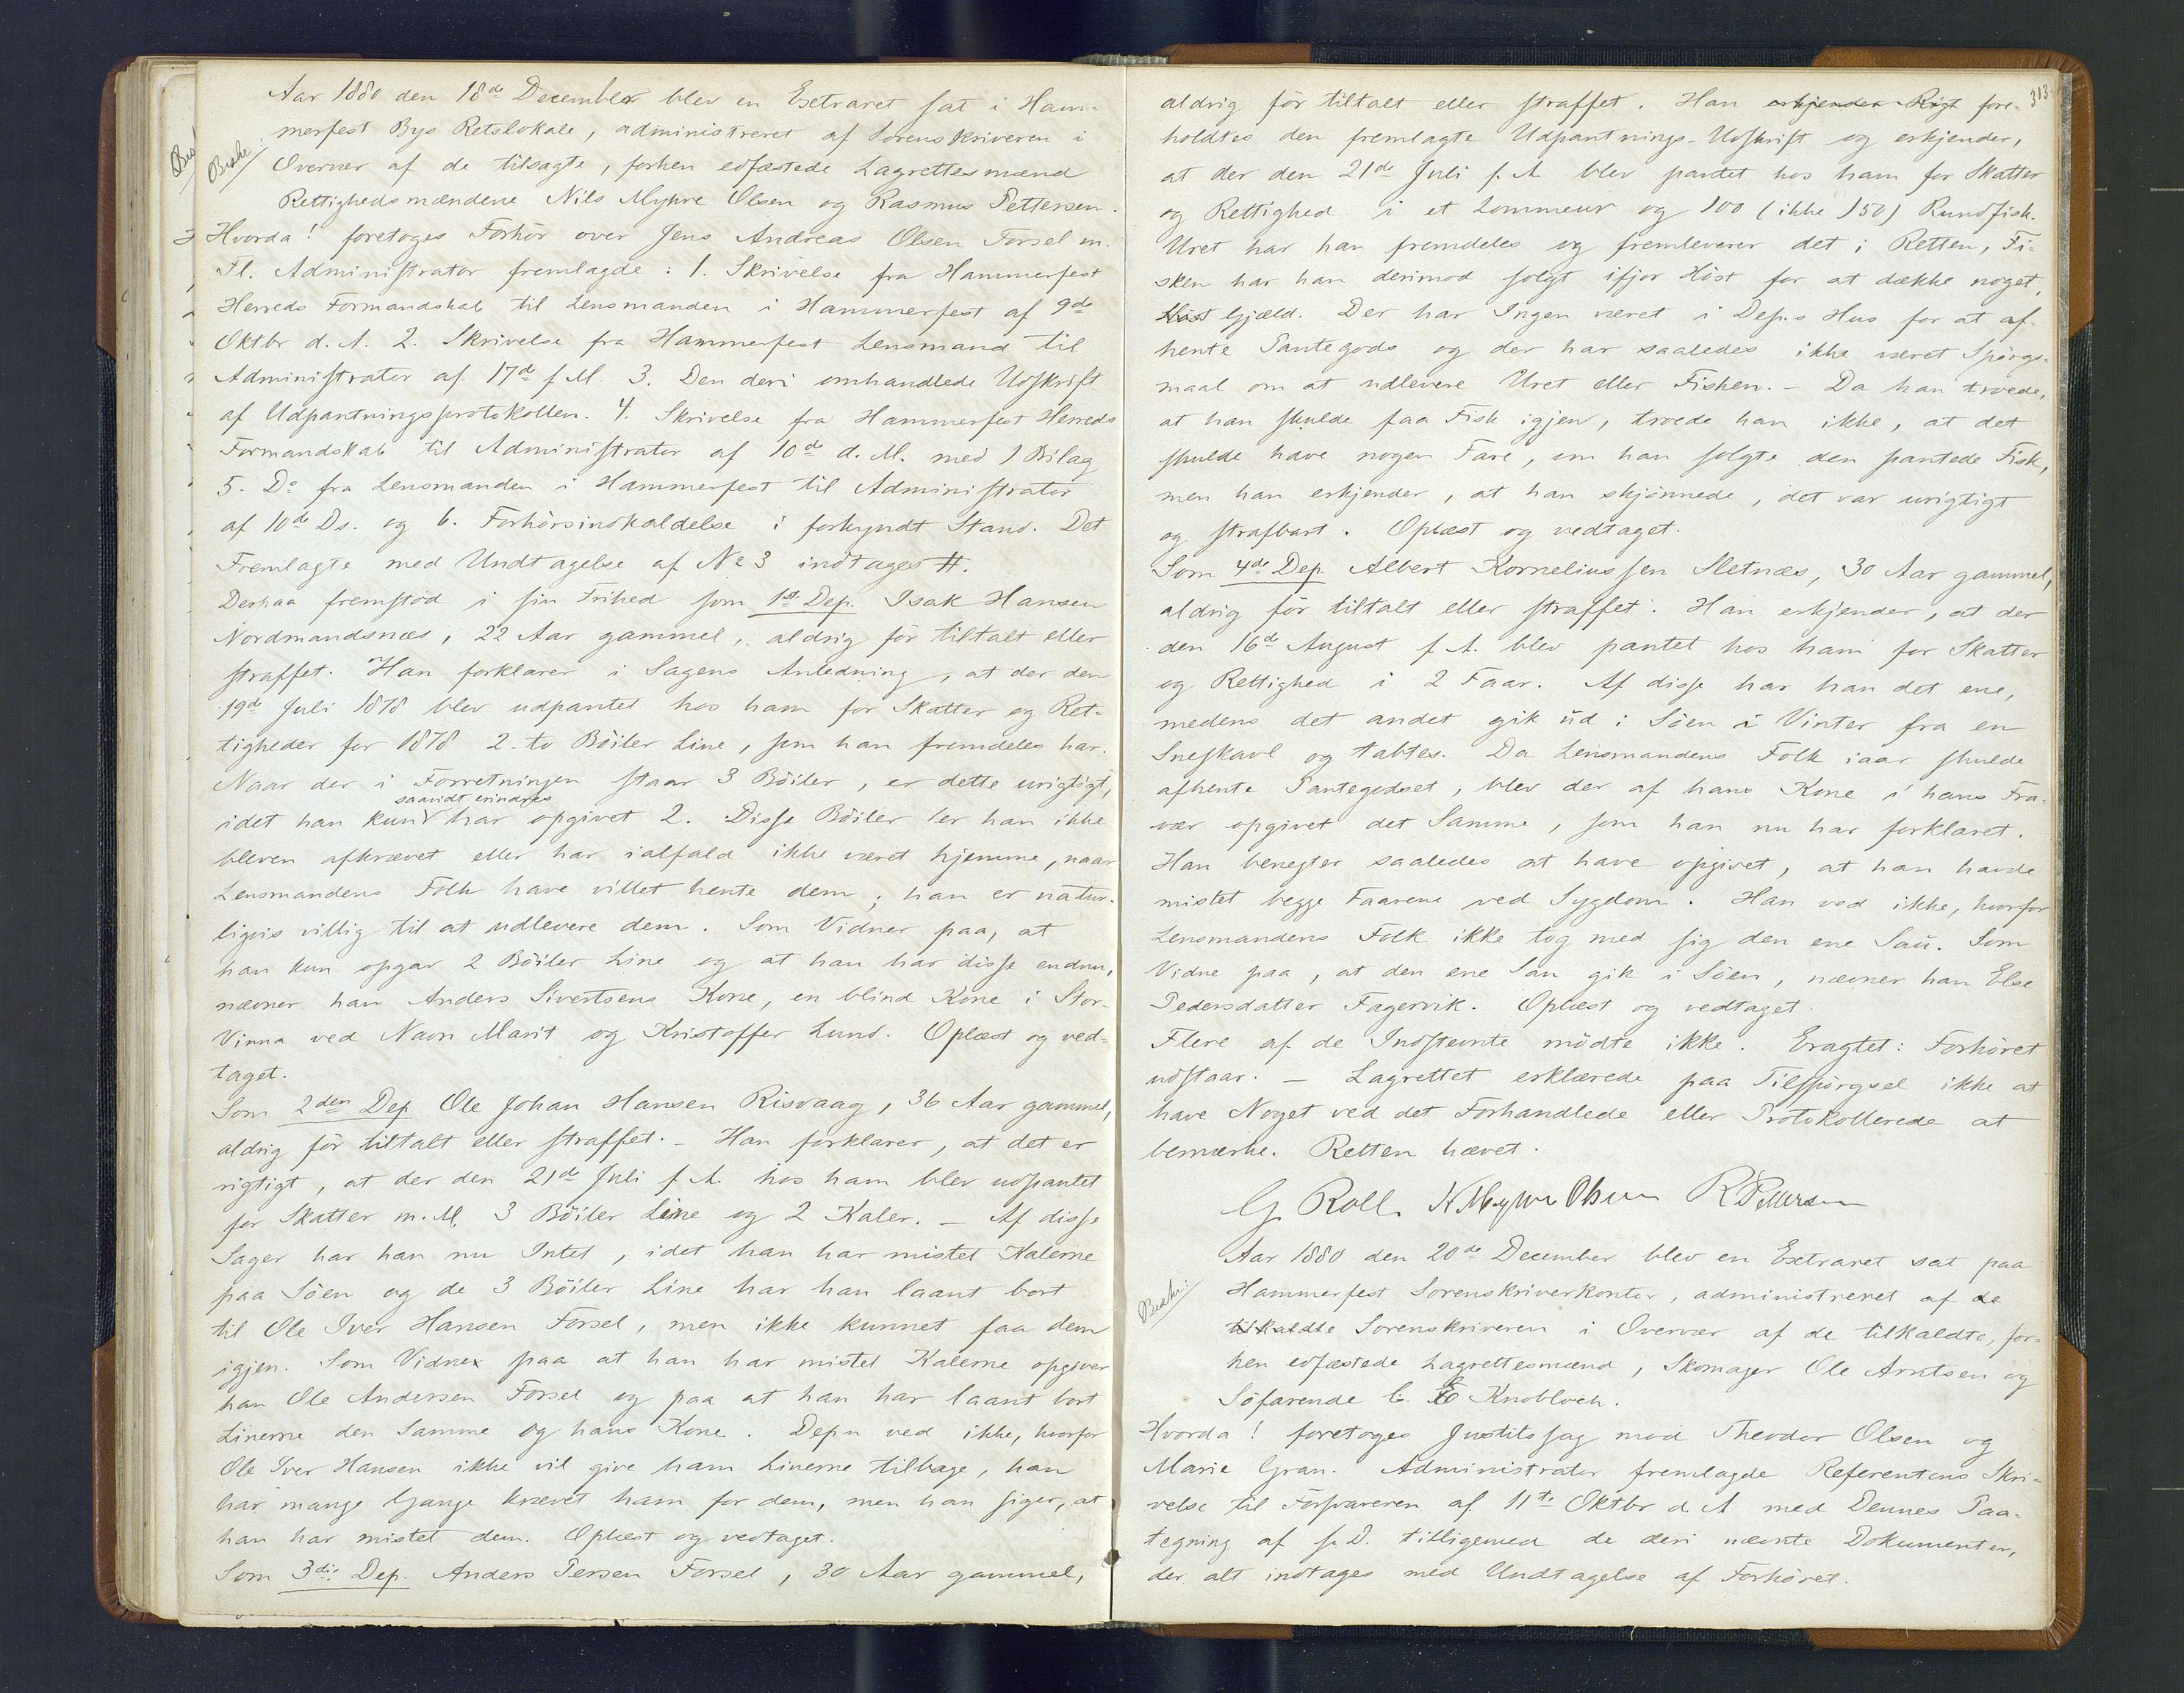 Aar 1880 den 18de December blev en Extraret sat i Ham-
merfest Bys Retslokale, administreret af Sorenskriveren i
Beskr:
Overvær af de tilsagte, forhen edfæstede Lagrettesmænd
Rettighedsmændene Nils Myhre Olsen og Rasmus Pettersen.
Hvorda! foretoges Forhör over Jens Andreas Olsen Forsel m.
Fl. Administrator fremlagde: 1. Skrivelse fra Hammerfest
Herreds Formandskab til Lensmanden i Hammerfest af 9de
Oktbr d. A. 2. Skrivelse fra Hammerfest Lensmand til
Administrator af 17de f. M. 3. Den deri omhandlede Udskrift
af Udpantningsprotokollen. 4. Skrivelse fra Hammerfest Herreds
Formandskab til Administrator af 10de d. M. med 1 Bilag
5. Do fra Lensmanden i Hammerfest til Administrator
af 10de Ds. og 6. Forhörsindkaldelse i forkyndt Stand. Det
Fremlagte med Undtagelse af No 3 indtages #.
Derpaa fremstod i sin Frihed som 1ste Dep. Isak Hansen
Nordmandsnæs, 22 Aar gammel, aldrig för tiltalt eller
straffet. Han forklarer i Sagens Anledning, at der den
19de Juli 1878 blev udpantet hos ham for Skatter og Ret-
tigheder for 1878 2-to Böiler Line, som han fremdeles har.
Naar der i Forretningen staar 3 Böiler, er dette urigtigt,
saavidt erindres
idet han kun har opgivet 2. Disse Böiler er han ikke
bleven afkrævet eller har ialfald ikke været hjemme, naar
Lensmandens Folk have villet hente dem; han er natur-
ligvis villig til at udlevere dem. Som Vidner paa, at
han kun opgav 2 Böiler Line og at han har disse endnu,
nævner han Anders Sivertsens Kone, en blind Kone i Stor-
Vinna ved Navn Marit og Kristoffer Lund. Oplæst og ved-
taget.
Som 2den Dep Ole Johan Hansen Risvaag, 36 Aar gammel,
aldrig för tiltalt eller straffet. – Han forklarer, at det er
rigtigt, at der den 21de Juli f. A. hos ham blev udpantet
for Skatter m. M. 3 Böiler Line og 2 Kaler. – Af disse
Sager har han nu Intet, idet han har mistet Kalerne
paa Söen og de 3 Böiler Line har han laant bort
til Ole Iver Hansen Forsel, men ikke kunnet faa dem
igjen. Som Vidne paa at han har mistet Kalerne opgiver
han Ole Andersen Forsel og paa at han har laant bort
Linerne den Samme og hans Kone. Depn ved ikke, hvorfor
Ole Iver Hansen ikke vil give ham Linerne tilbage, han
har mange Gange krævet ham for dem, men han siger, at
han har mistet dem. Oplæst og vedtaget.
Som 3die Dep. Anders Persen Forsel, 30 Aar gammel,
313
aldrig för tiltalt eller straffet. Han erkjender Rigt fore-
holdtes den fremlagte Udpantnings-Udskrift og erkjender,
at der den 21de Juli f. A. blev pantet hos ham for Skatter
og Rettighed i et Lommeur og 100 (ikke 150) Rundfisk.
Uret har han fremdeles og fremleverer det i Retten, Fi-
sken har han derimod solgt ifjor Höst for at dække noget
Gjæld. Der har Ingen været i Dep.s Hus for at af-
hente Pantegods og der har saaledes ikke været Spörgs-
maal om at udlevere Uret eller Fisken. – Da han troede,
at han skulde faa Fisk igjen, troede han ikke, at det
skulde have nogen Fare, om han solgte den pantede Fisk,
men han erkjender, at han skjönnede, det var urigtigt
og strafbart. Oplæst og vedtaget.
Som 4de Dep. Albert Korneliussen Sletnæs, 30 Aar gammel,
aldrig för tiltalt eller straffet. Han erkjender, at der
den 16de August f. A. blev pantet hos ham for Skatter
og Rettighed i 2 Faar. Af disse har han det ene,
medens det andet gik ud i Söen i Vinter fra en
Sneskavl og tabtes. Da Lensmandens Folk iaar skulde
afhente Pantegodset, blev der af hans Kone i hans Fra-
vær opgivet det Samme, som han nu har forklaret.
Han benegter saaledes at have opgivet, at han havde
mistet begge Faarene ved Sygdom. Han ved ikke, hvorfor
Lensmandens Folk ikke tog med sig den ene Sau. Som
Vidne paa, at den ene Sau gik i Söen, nævner han Else
Pedersdatter Fagervik. Oplæst og vedtaget.
Flere af de Indstevnte mödte ikke. Eragtet: Forhöret
udstaar. – Lagrettet erklærede paa Tilspörgsel ikke at
have Noget ved det Forhandlede eller Protokollerede at
bemærke. Retten hævet.
G. Roll. N Myhre Olsen R Pettersen
Aar 1880 den 20de December blev en Extraret sat paa
Beskr:
Hammerfest Sorenskriverkontor, administreret af de
tilkaldte Sorenskriveren i Overvær af de tilkaldte, for-
hen edfæstede Lagrettesmænd, Skomager Ole Arntsen og
Söfarende C. E Knobloch.
Hvorda! foretoges Justitssag mod Theodor Olsen og
Marie Gran. Administrator fremlagde Referentens Skri-
velse til Forsvareren af 11te Oktbr d. A med Dennes Paa-
tegning af s. D. tilligemed de deri nævnte Dokumenter,
der alt indtages med Undtagelse af Forhöret.